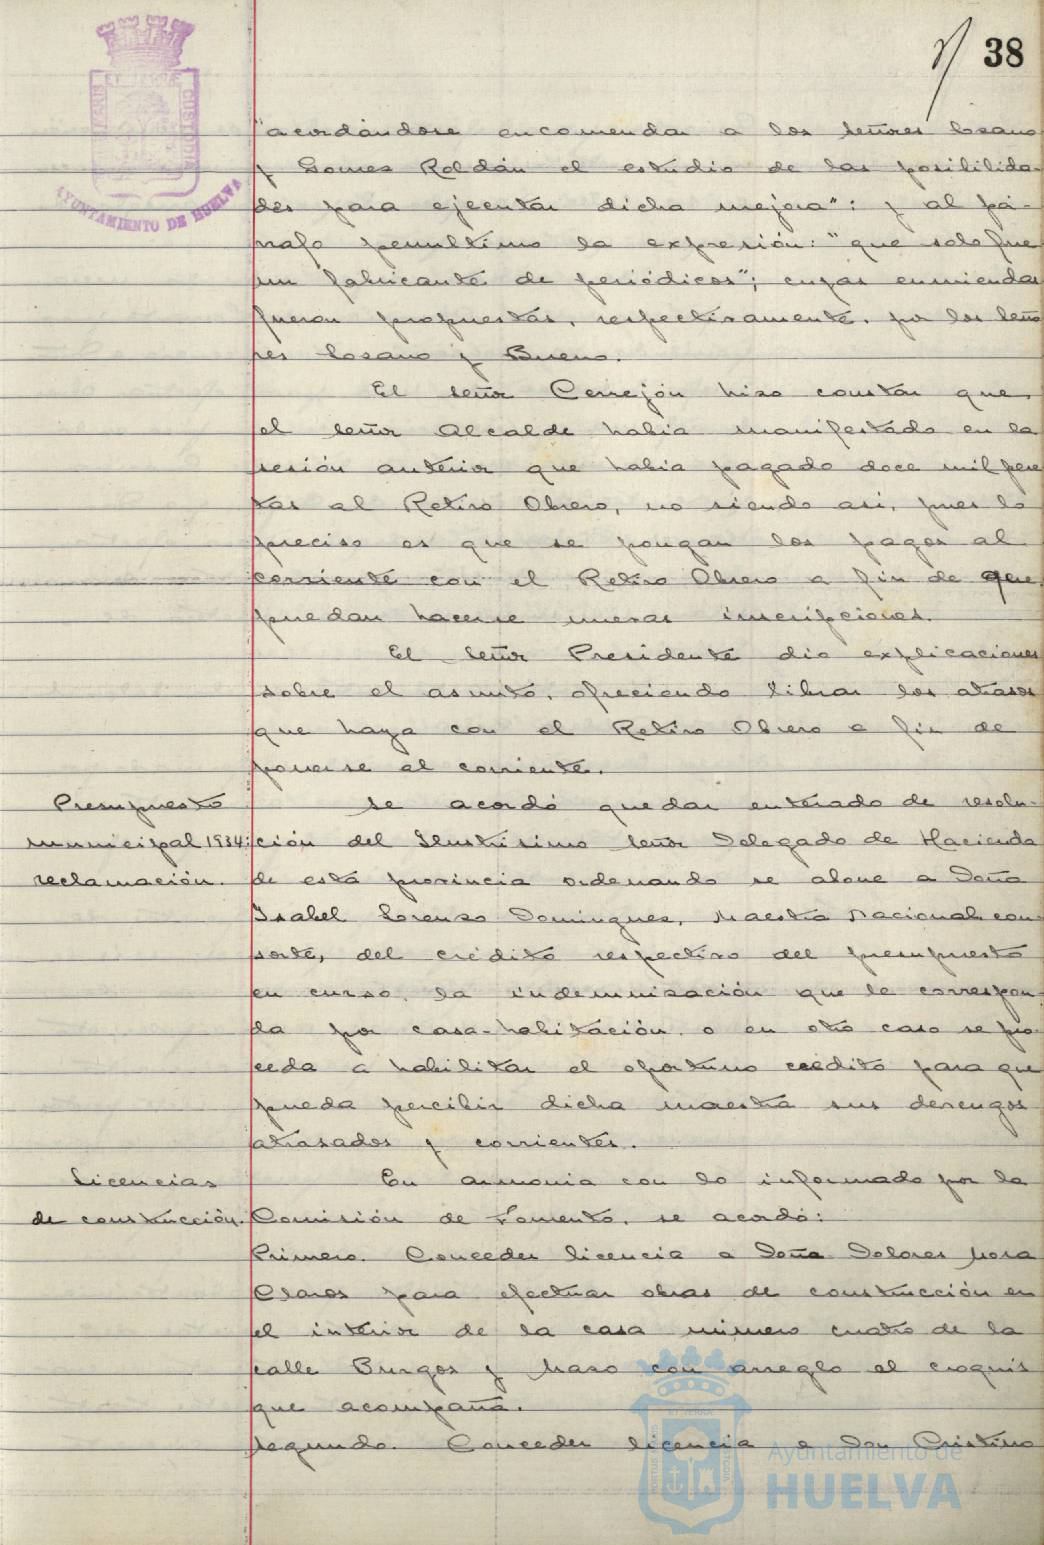 38
"acordándose encomendar a los señores Lozano
y Gomez Roldán el estudio de las posibilida-
des para ejecutar dicha mejora"; y al pá-
rrafo penultimo la expresión: "que solo fue
un fabricante de periódicos"; cuyas enmiendas
fueron propuestas, respectivamente, por los seño
res Lozano y Bueno.
El señor Cerrejón hizo constar que
el señor Alcalde habia manifestado en la
sesión anterior que habia pagado doce mil pese
tas al Retiro Obrero, no siendo asi, pues lo
preciso es que se pongan los pagos al
corriente con el Retiro Obrero a fin de que
puedan hacerse nuevas inscripciones.
El señor Presidente dio explicaciones
sobre el asunto, ofreciendo librar los atrasos
que haya con el Retiro Obrero a fin de
ponerse al corriente.
Presupuesto
municipal 1934:
reclamación.
Se acordó quedar enterado de resolu-
ción del Ilustrisimo señor Delegado de Hacienda
de esta provincia ordenando se abone a Doña
Isabel Lorenzo Dominguez, Maestra Nacional con-
sorte, del crédito respectivo del presupuesto
en curso, la indemnización que le correspon
da por casa-habitación o en otro caso se pro
ceda a habilitar el oportuno crédito para que
pueda percibir dicha maestra sus devengos
atrasados y corrientes.
Licencias
de construcción.
En armonia con lo informado por la
Comisión de Fomento, se acordó:
Primero. Conceder licencia a Doña Dolores Mora
Claros para efectuar obras de construcción en
el interior de la casa número cuatro de la
calle Burgos y Mazo con arreglo al croquis
que acompaña.
Segundo. Conceder licencia a Don Cristino
AYUNTAMIENTO DE HUELVA
Ayuntamiento de
HUELVA